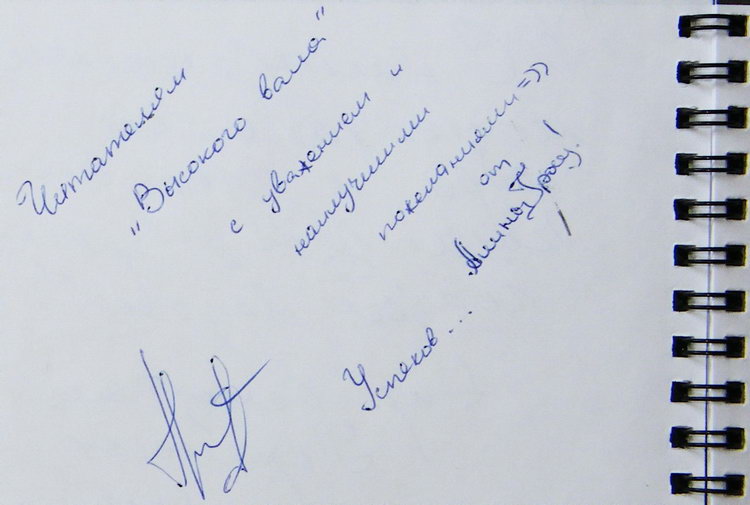 Читателям
"Высокого вала"
с уважением и
наилучшими
пожеланиями =))
от
Алины Гросу!
Успехов...